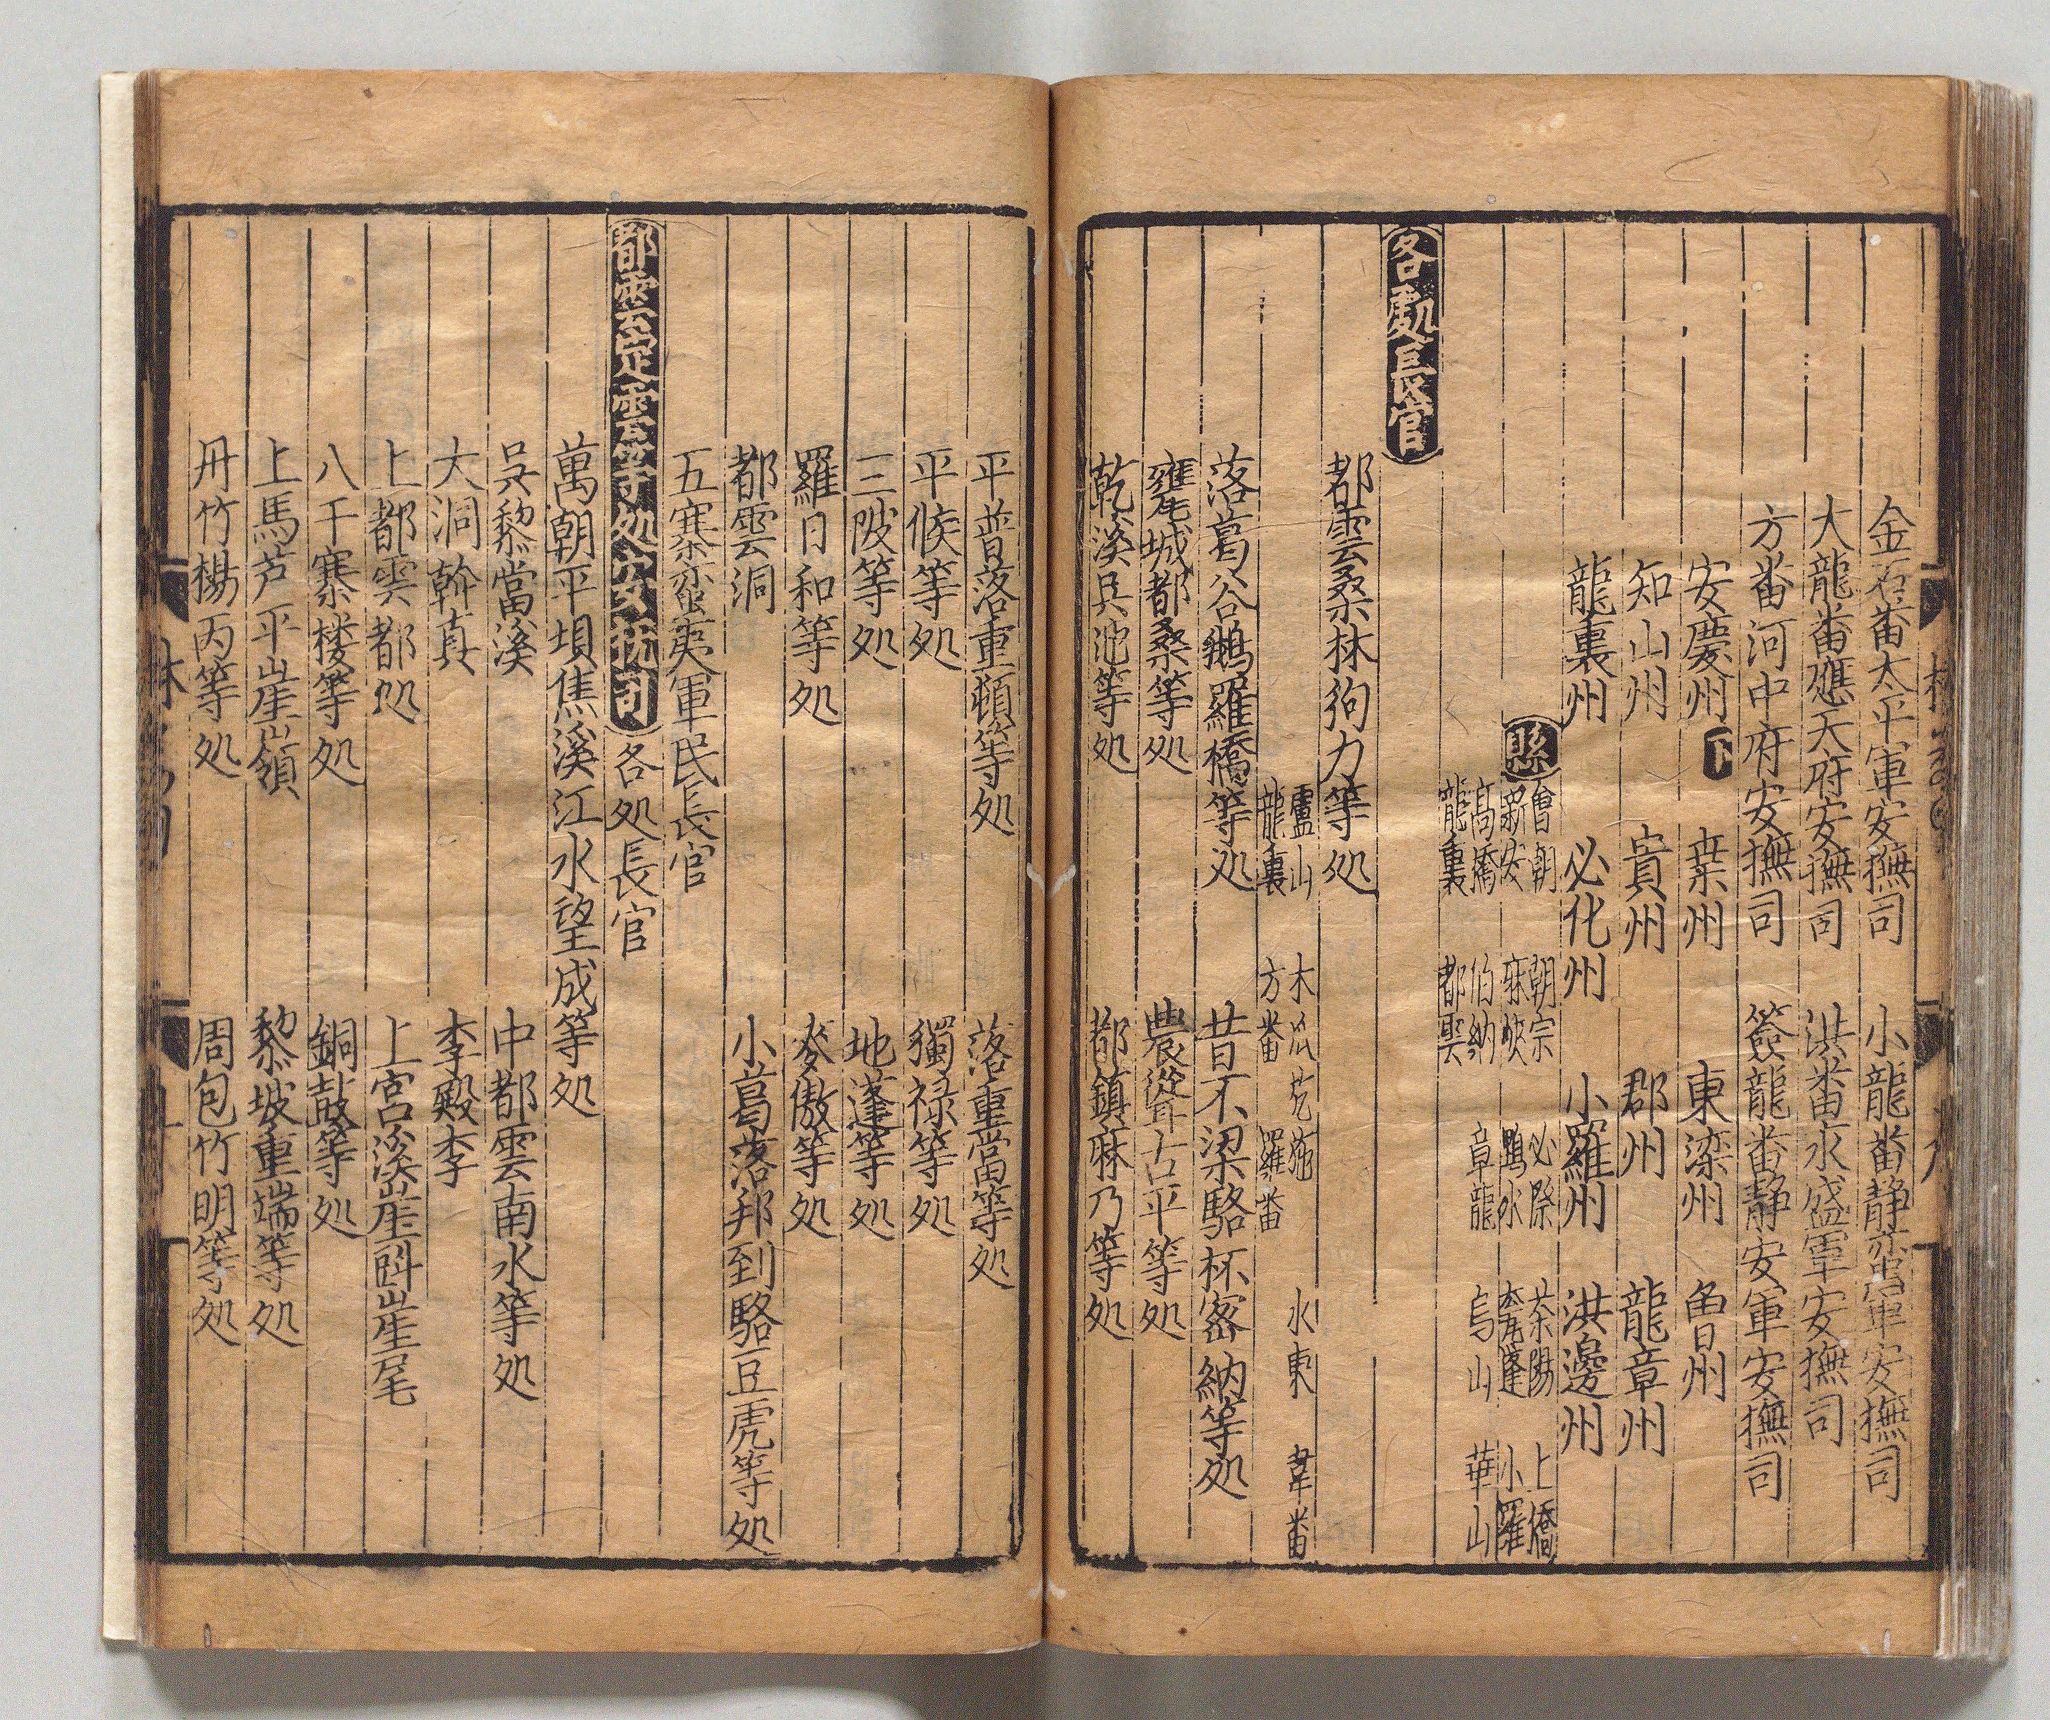 金石番太平軍安撫司　小龍番静蛮軍安撫司
大龍番應天府安撫司　洪番永盛軍安撫司
方番河中府安撫司　盤龍番静安軍安撫司
安慶州　下　葉州　東滦州　魯州
知山州　貴州　郡州　龍章州
龍裏州　必化州　小羅州　洪邊州
縣　曾朝　朝宗　必際　茶陽　上橋
新安　麻峽　鴨水　瓮蓬　小羅
高橋　伯納　章龍　烏山　華山
龍裏　都雲
各處長官
都雲桑林狗力等処
盧山　木瓜芤施　水東　韋番
龍裏　方番　羅番
落葛谷鵝羅橋等処　昔不梁駱杯密納等処
甕城都桑等処　農聳古平等処
乾溪具池等処　都鎮麻乃等処
平普落重頓等処　落重當等処
平候等処　獨禄等処
三陂等処　地蓬等処
羅日和等処　麥傲等処
都雲洞　小葛落邦到駱豆虎等処
五寨蛮夷軍民長官
都雲定雲等処安撫司　各処長官
萬朝平垻焦溪江水望成等処
吳黎當溪　中都雲南水等処
大洞斡真　李殿李
上都雲都処　上宮溪崖卧崖尾
八千寨楼等処　銅鼓等処
上馬芦平崖嶺　黎坡重端等処
丹竹楊丙等処　周包竹明等処